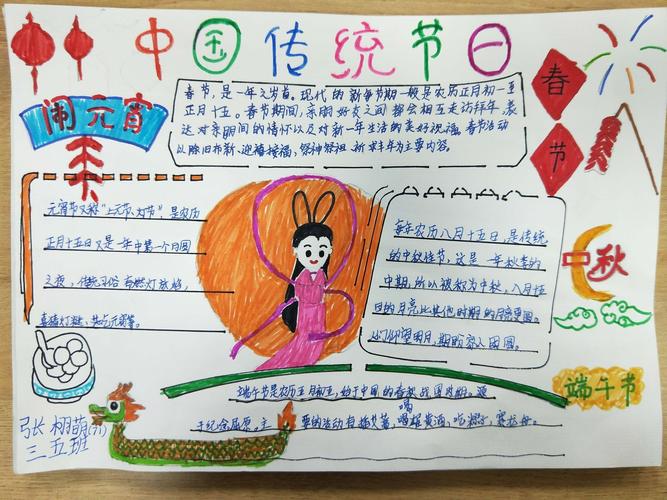 中国传统节日
春节,是一年之岁首。现代的新春节期一般是农历正月初一至
正月十五。春节期间,亲朋好友之间都会相互走访拜年,表
达对亲朋间的情怀以及对新一年生活的美好祝福。春节活动
以除旧布新、迎禧接福、祭神祭祖、祈求丰年为主要内容。
春节
闹元宵
元宵节又称"上元节、灯节",是农历
正月十五日又是一年中第一个月圆
之夜,传统习俗有燃灯放焰,
喜猜灯谜、共吃元宵等。
每年农历八月十五日,是传统
的中秋佳节,这是一年秋季的
中期,所以被称为中秋。八月十五
日的月亮比其他时期的月亮更圆。
人们仰望明月,期盼家人团圆。
中秋
端午节
端午节是农历五月初五,始于中国的春秋战国时期。源
于纪念屈原。主要的活动有插艾蒿,喝雄黄酒,吃粽子,赛龙舟。
张栩萌(71)
三五班